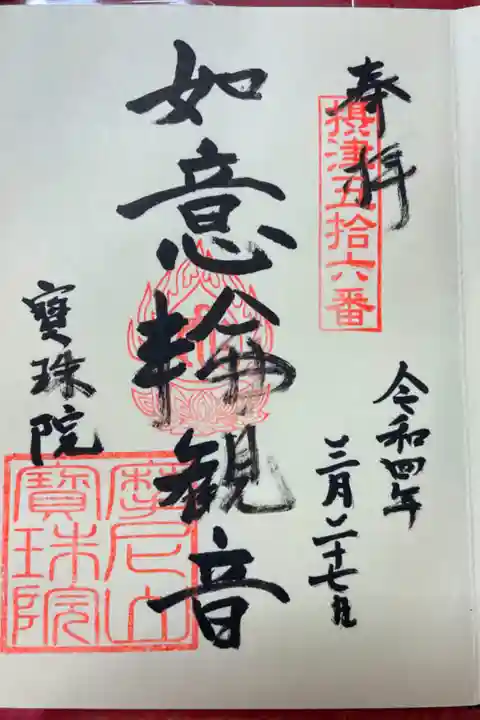 奉拝
摂津五拾六番
令和四年
三月二十七日
如意輪観音
寳珠院
摩尼山
寳珠院